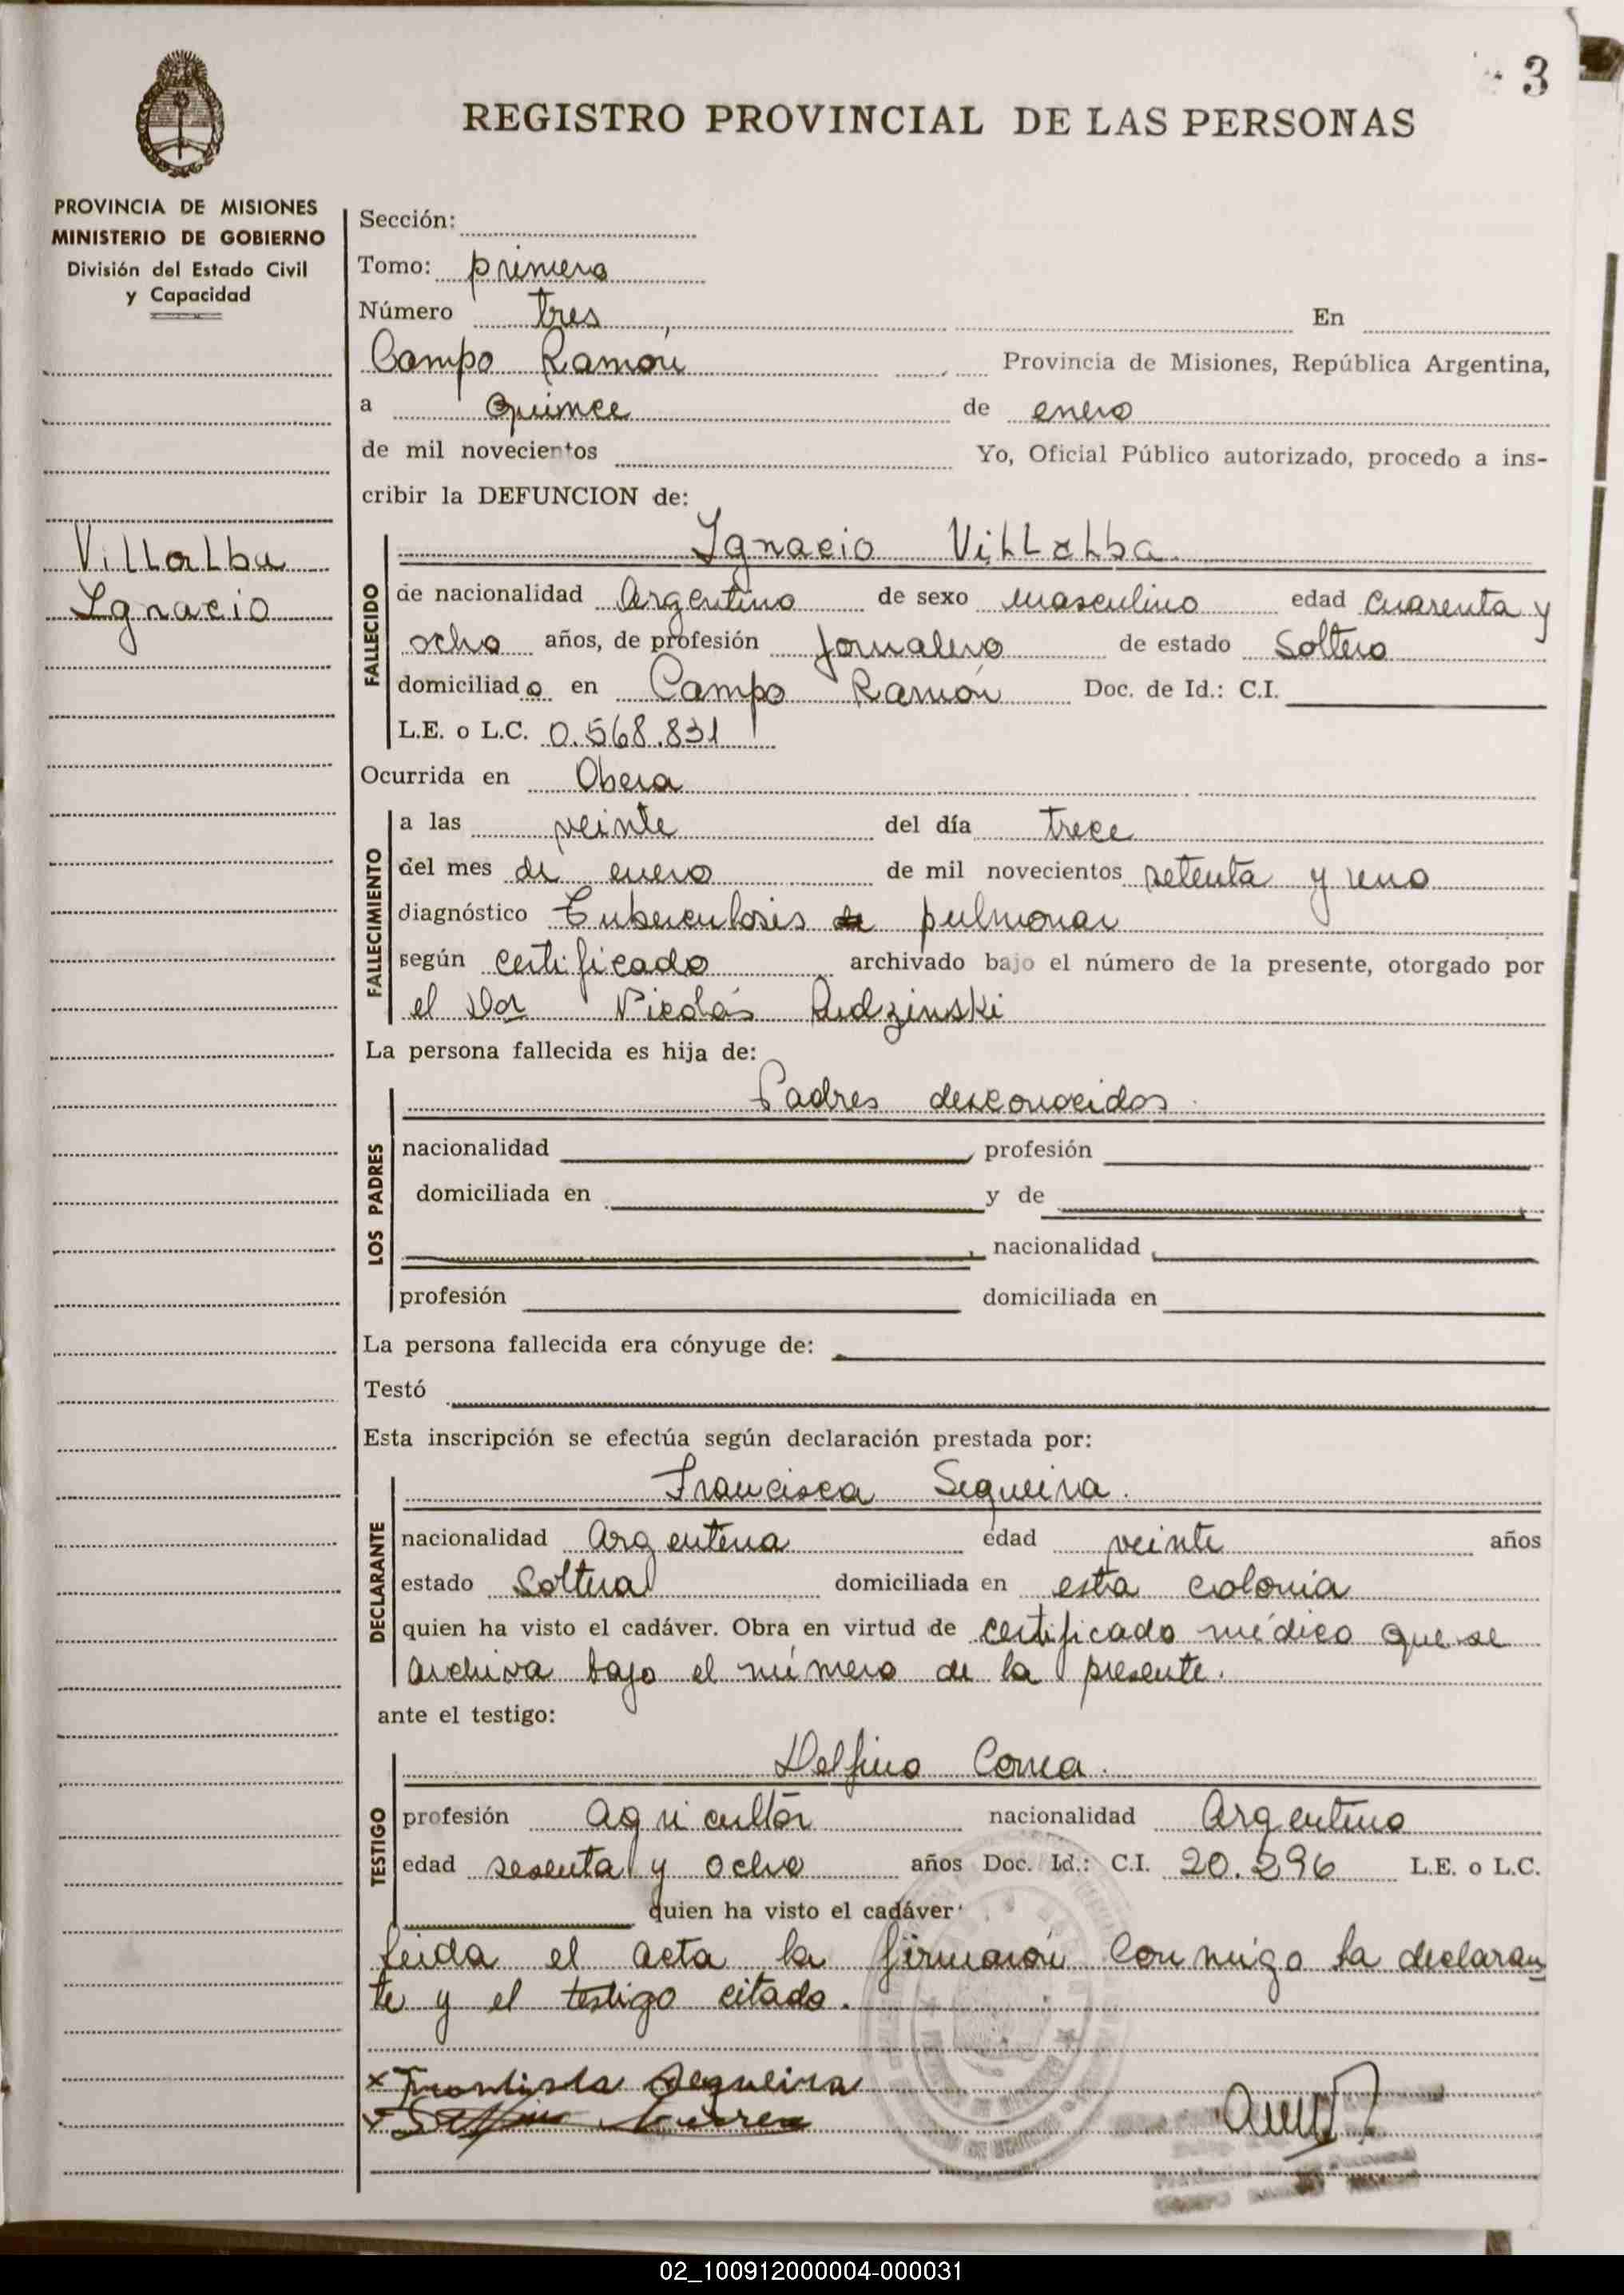 3
REGISTRO PROVINCIAL DE LAS PERSONAS
PROVINCIA DE MISIONES
MINISTERIO DE GOBIERNO
División del Estado Civil
y Capacidad
Villalba
Ignacio
Sección:
Tomo: primero
Número tres, En
Campo Ramón Provincia de Misiones, República Argentina,
a Quince de enero
de mil novecientos Yo, Oficial Público autorizado, procedo a ins-
cribir la DEFUNCION de:
Ignacio Villalba
FALLECIDO
de nacionalidad Argentino de sexo masculino edad cuarenta y
ocho años, de profesión Jornalero de estado Soltero
domiciliado en Campo Ramón Doc. de Id.: C.I.
L.E. o L.C. 0.568.831
Ocurrida en Obera
FALLECIMIENTO
a las veinte del día trece
del mes de enero de mil novecientos setenta y uno
diagnóstico Tuberculosis de pulmonar
según certificado archivado bajo el número de la presente, otorgado por
el Dor Nicolás Rudzinski
La persona fallecida es hija de:
LOS PADRES
Padres desconocidos.
nacionalidad profesión
domiciliada en y de
, nacionalidad
profesión domiciliada en
La persona fallecida era cónyuge de:
Testó
Esta inscripción se efectúa según declaración prestada por:
DECLARANTE
Francisca Sequeira.
nacionalidad Argentina edad veinte años
estado Soltera domiciliada en esta colonia
quien ha visto el cadáver. Obra en virtud de certificado médico que se
archiva bajo el número de la presente.
ante el testigo:
TESTIGO
Delfino Correa.
profesión agricultor nacionalidad Argentino
edad sesenta y ocho años Doc. Id.: C.I. 20.296 L.E. o L.C.
quien ha visto el cadáver
leida el acta la firmarón conmigo la declaran
te y el testigo citado.
x Sequeira
x Correa
02_100912000004-000031